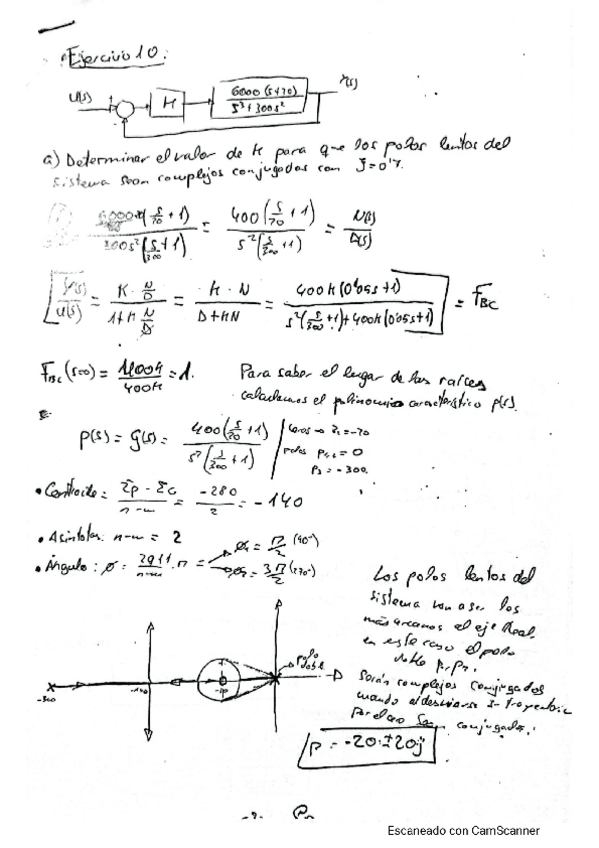 Ejercicio 10:
U(s) + K 6000(s+20) / s³+300s² Y(s)
a) Determinar el valor de K para que los polos lentos del
sistema sean complejos conjugados con ξ=0'7.
(s/20 + 1) / 300s²(s/300 + 1) = 400(s/20 + 1) / s²(s/300 + 1) = N(s)/D(s)
Y(s)/U(s) = K·N/D / 1+K N/D = K·N / D+KN = 400K(0'05s+1) / s²(s/300+1)+400K(0'05s+1) = F_BC
F_BC(s=0) = 400K/400K = 1.
Para saber el lugar de las raíces
calculamos el polinomio característico p(s).
p(s) = g(s) = 400(s/20 + 1) / s²(s/300 + 1)
Ceros → z₁=-20
polos p₁,₂ = 0
p₃ = -300.
• Centroide = Σp - Σc / n-m = -280/2 = -140
• Asíntotas: n-m = 2
• Ángulo: ø = 2q+1/n-m · π = ø₁ = π/2 (90°)
ø₂ = 3π/2 (270°)
Los polos lentos del
sistema van a ser los
más cercanos al eje Real.
en este caso el polo
doble p₁,p₂.
Serán complejos conjugados
cuando al desviarse
conjugados.
polo doble
-300
-140
-20
p = -20 ± 20j
Escaneado con CamScanner